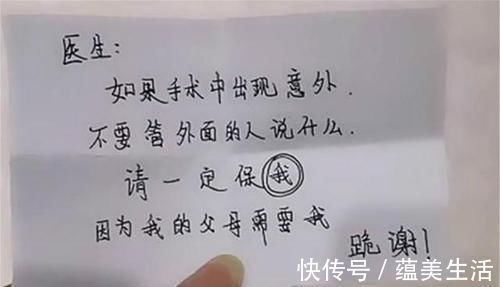 医生:
如果手术中出现意外.
不要管外面的人说什么.
请一定保我
因为我的父母需要我
跪谢!
快传号/蕴美生活